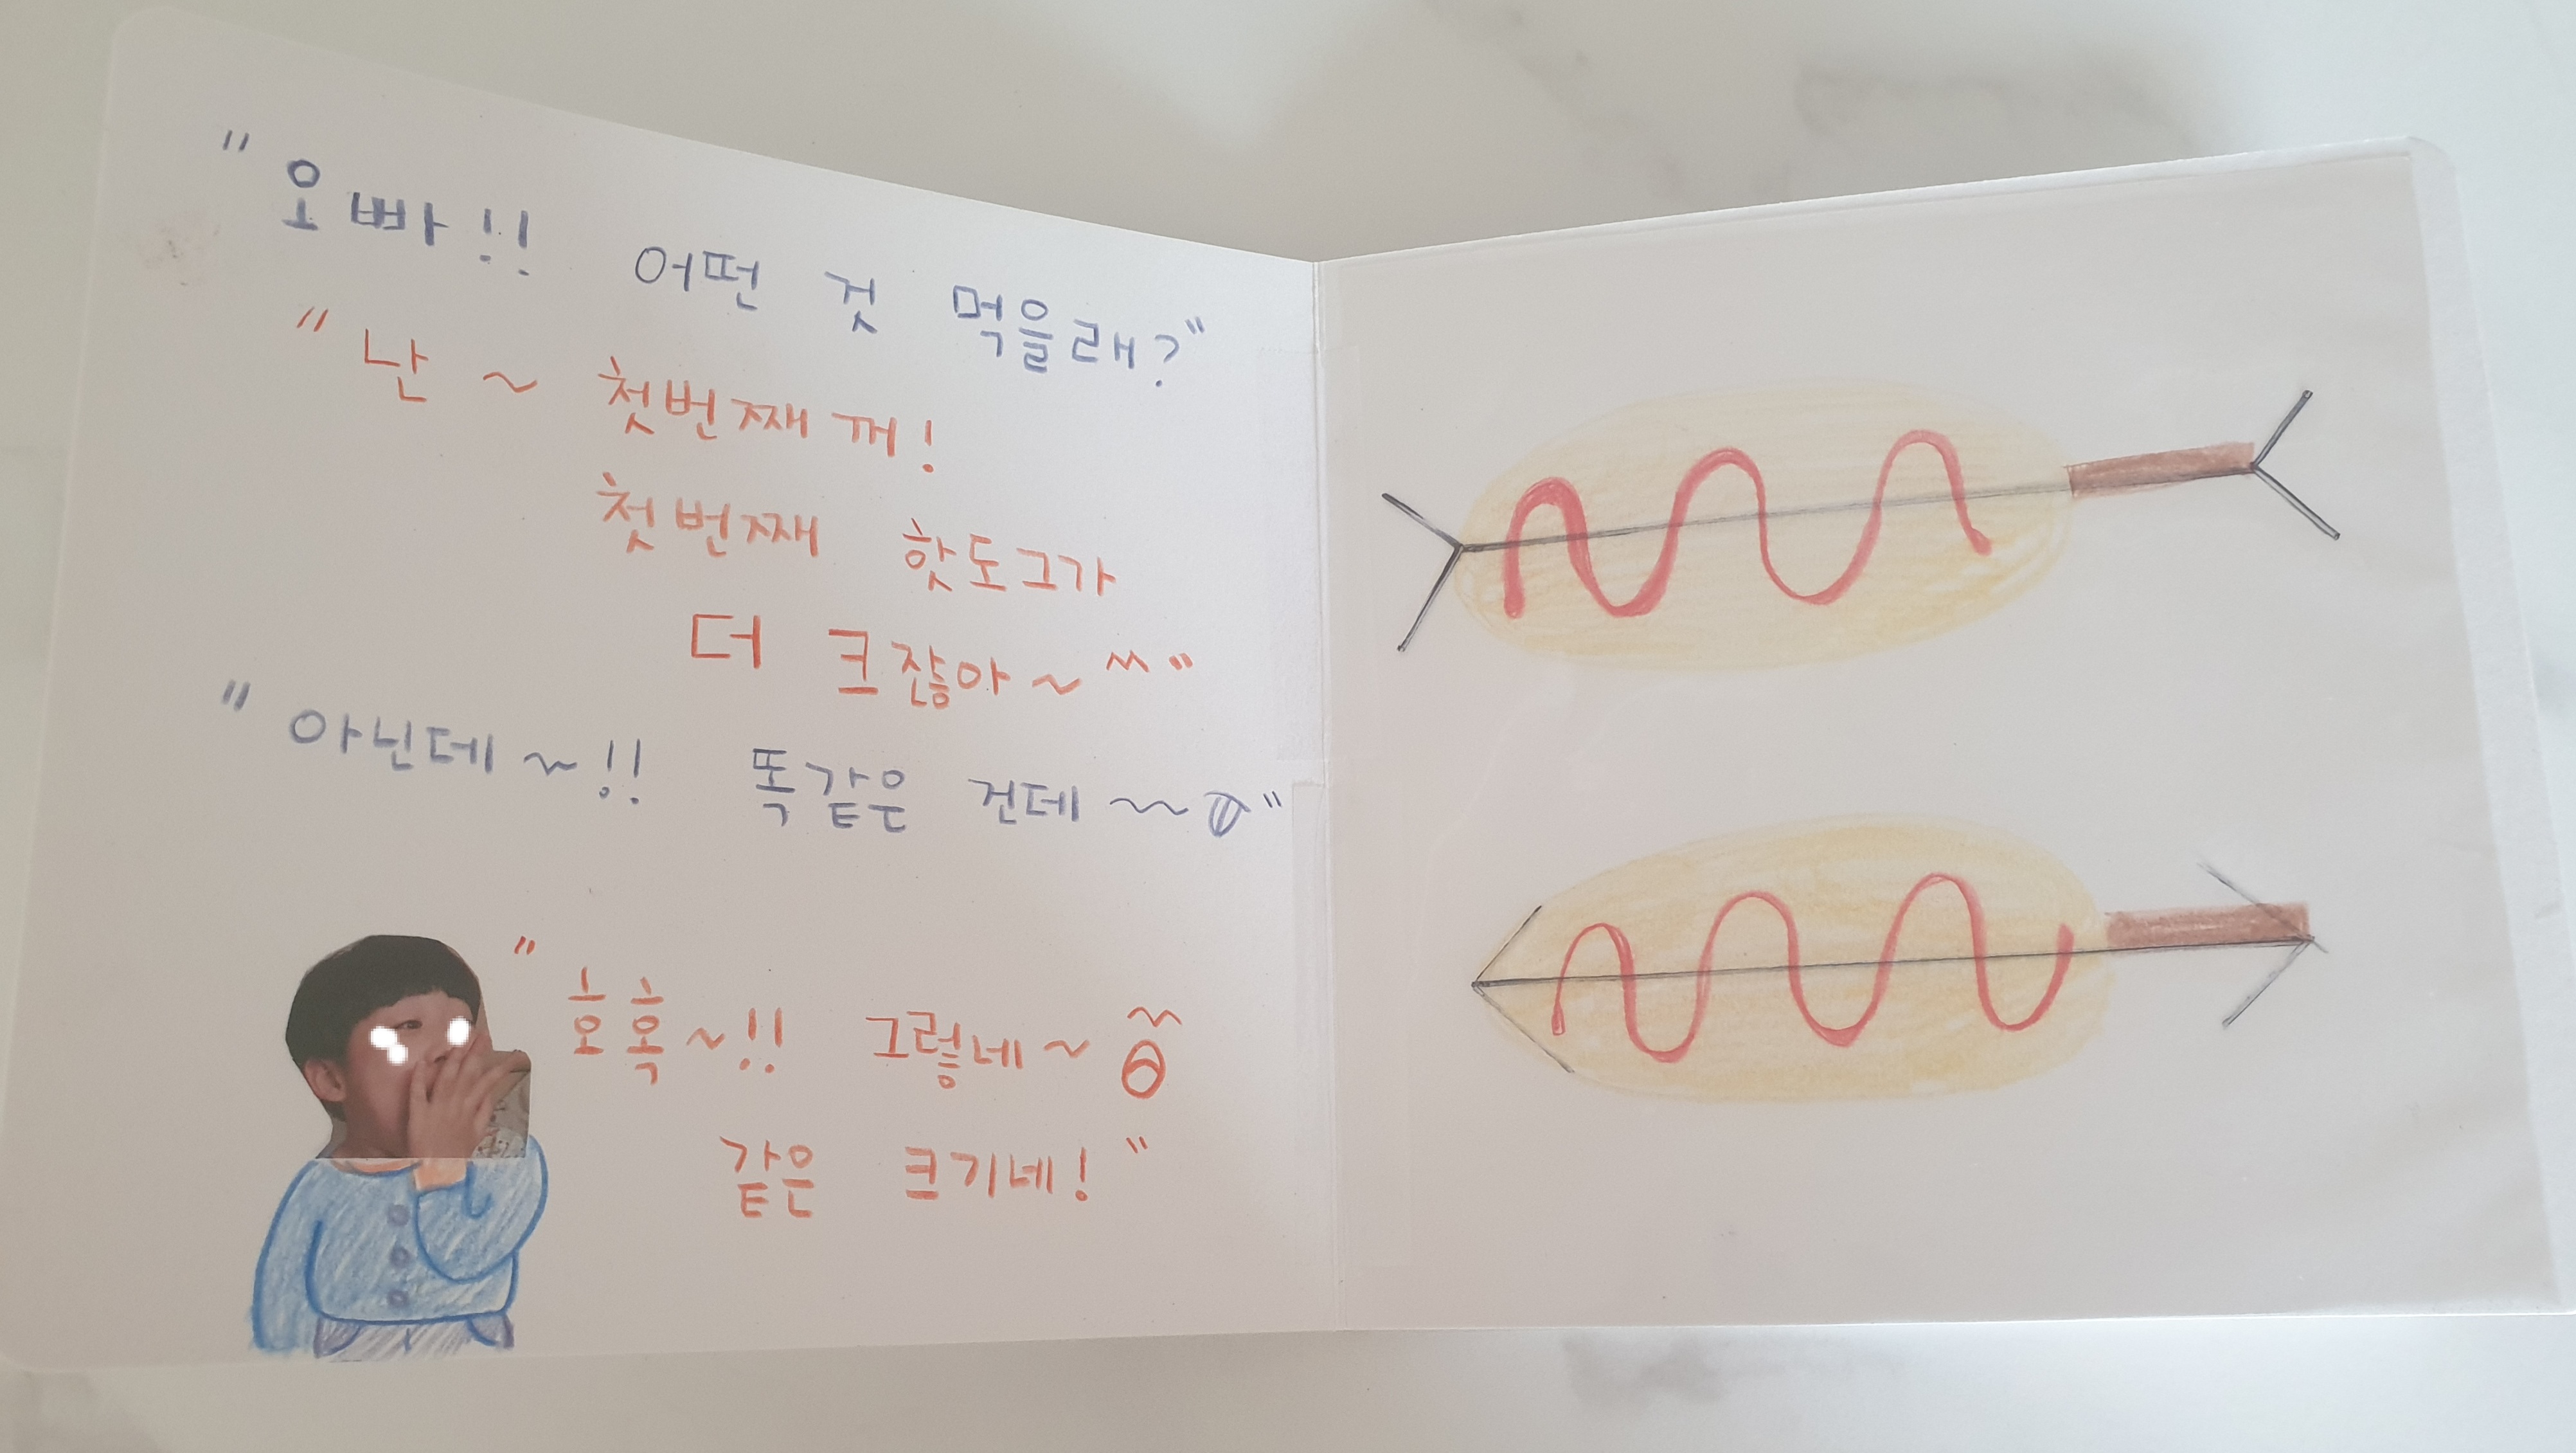 "오빠!! 어떤 것 먹을래?"
"난 ~ 첫번째 꺼!
첫번째 핫도그가
더 크잖아~^^"
"아닌데~!! 똑같은 건데~~"
"호혹~!! 그렇네~
같은 크기네!"